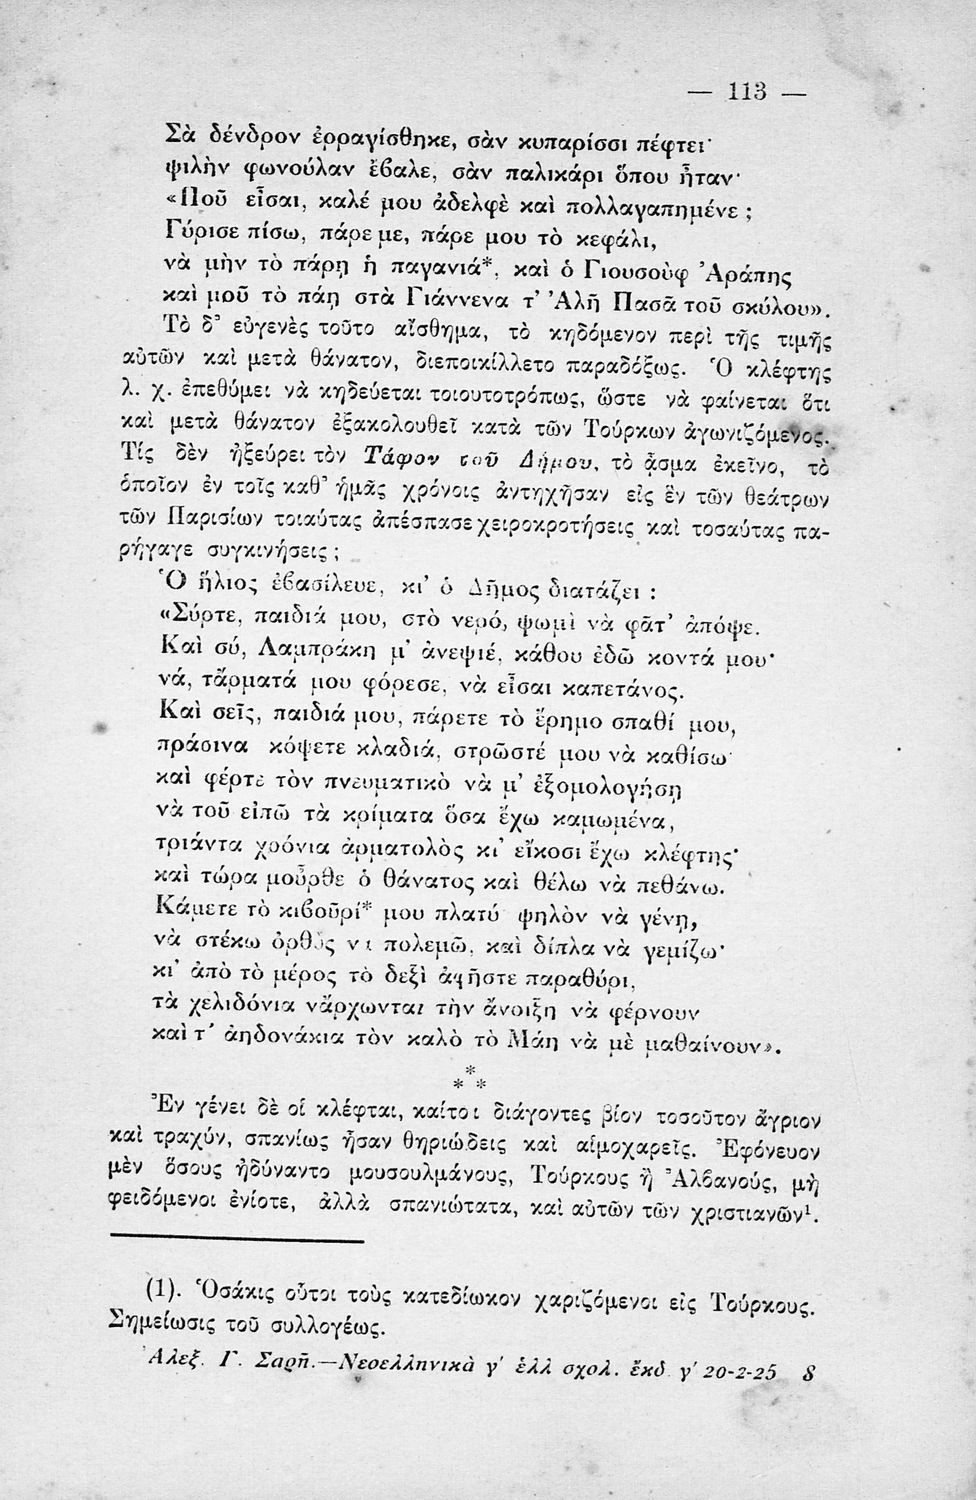 — 113 —
Σὰ δένδρον ἐρραγίσθηκε, σὰν κυπαρίσσι πέφτει·
ψιλὴν φωνούλαν ἔβαλε, σὰν παλικάρι ὅπου ἦταν·
«Ποῦ εἶσαι, καλέ μου ἀδελφὲ καὶ πολλαγαπημένε ;
Γύρισε πίσω, πάρε με, πάρε μου τὸ κεφάλι,
νὰ μὴν τὸ πάρῃ ἡ παγανιά*, καὶ ὁ Γιουσοὺφ Ἀράπης
καὶ μοῦ τὸ πάῃ στὰ Γιάννενα τ' Ἀλῆ Πασᾶ τοῦ σκύλου».
Τὸ δ' εὐγενὲς τοῦτο αἴσθημα, τὸ κηδόμενον περὶ τῆς τιμῆς
αὐτῶν καὶ μετὰ θάνατον, διεποικίλλετο παραδόξως. Ὁ κλέφτης
λ. χ. ἐπεθύμει νὰ κηδεύεται τοιουτοτρόπως, ὥστε νὰ φαίνεται ὅτι
καὶ μετὰ θάνατον ἐξακολουθεῖ κατὰ τῶν Τούρκων ἀγωνιζόμενος.
Τίς δὲν ἠξεύρει τὸν Τάφον τοῦ Δήμου, τὸ ᾆσμα ἐκεῖνο, τὸ
ὁποῖον ἐν τοῖς καθ' ἡμᾶς χρόνοις ἀντηχῆσαν εἰς ἓν τῶν θεάτρων
τῶν Παρισίων τοιαύτας ἀπέσπασε χειροκροτήσεις καὶ τοσαύτας πα-
ρήγαγε συγκινήσεις ;
Ὁ ἥλιος ἐβασίλευε, κι' ὁ Δῆμος διατάζει :
«Σύρτε, παιδιά μου, στὸ νερό, ψωμὶ νὰ φᾶτ' ἀπόψε.
Καὶ σύ, Λαμπράκη μ' ἀνεψιέ, κάθου ἐδῶ κοντά μου·
νά, τἄρματά μου φόρεσε, νὰ εἶσαι καπετάνος.
Καὶ σεῖς, παιδιά μου, πάρετε τὸ ἔρημο σπαθί μου,
πράσινα κόψετε κλαδιά, στρῶστέ μου νὰ καθίσω·
καὶ φέρτε τὸν πνευματικὸ νὰ μ' ἐξομολογήσῃ
νὰ τοῦ εἰπῶ τὰ κρίματα ὅσα ἔχω καμωμένα,
τριάντα χρόνια ἀρματολὸς κι' εἴκοσι ἔχω κλέφτης·
καὶ τώρα μοὖρθε ὁ θάνατος καὶ θέλω νὰ πεθάνω.
Κάμετε τὸ κιβοῦρί* μου πλατύ ψηλὸν νὰ γένῃ,
νὰ στέκω ὀρθὸς νὰ πολεμῶ, καὶ δίπλα νὰ γεμίζω·
κι' ἀπὸ τὸ μέρος τὸ δεξὶ ἀφῆστε παραθύρι,
τὰ χελιδόνια νἄρχωνται τὴν ἄνοιξη νὰ φέρνουν
καὶ τ' ἀηδονάκια τὸν καλὸ τὸ Μάη νὰ μὲ μαθαίνουν».
*
* *
Ἐν γένει δὲ οἱ κλέφται, καίτοι διάγοντες βίον τοσοῦτον ἄγριον
καὶ τραχύν, σπανίως ἦσαν θηριώδεις καὶ αἱμοχαρεῖς. Ἐφόνευον
μὲν ὅσους ἠδύναντο μουσουλμάνους, Τούρκους ἢ Ἀλβανούς, μὴ
φειδόμενοι ἐνίοτε, ἀλλὰ σπανιώτατα, καὶ αὐτῶν τῶν χριστιανῶν¹.
(1). Ὁσάκις οὗτοι τοὺς κατεδίωκον χαριζόμενοι εἰς Τούρκους.
Σημείωσις τοῦ συλλογέως.
Ἀλεξ. Γ. Σαρῆ.—Νεοελληνικὰ γ' ἑλλ σχολ. ἔκδ γ' 20-2-25 8